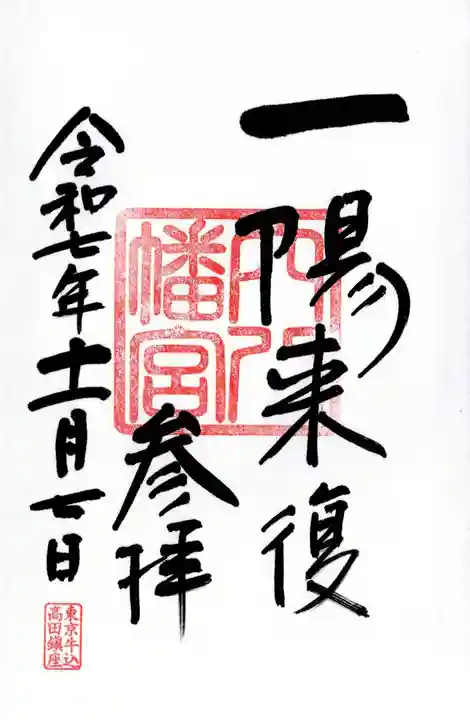 一陽来復
穴八
幡宮
参拝
令和七年十一月七日
東京牛込
高田鎮座